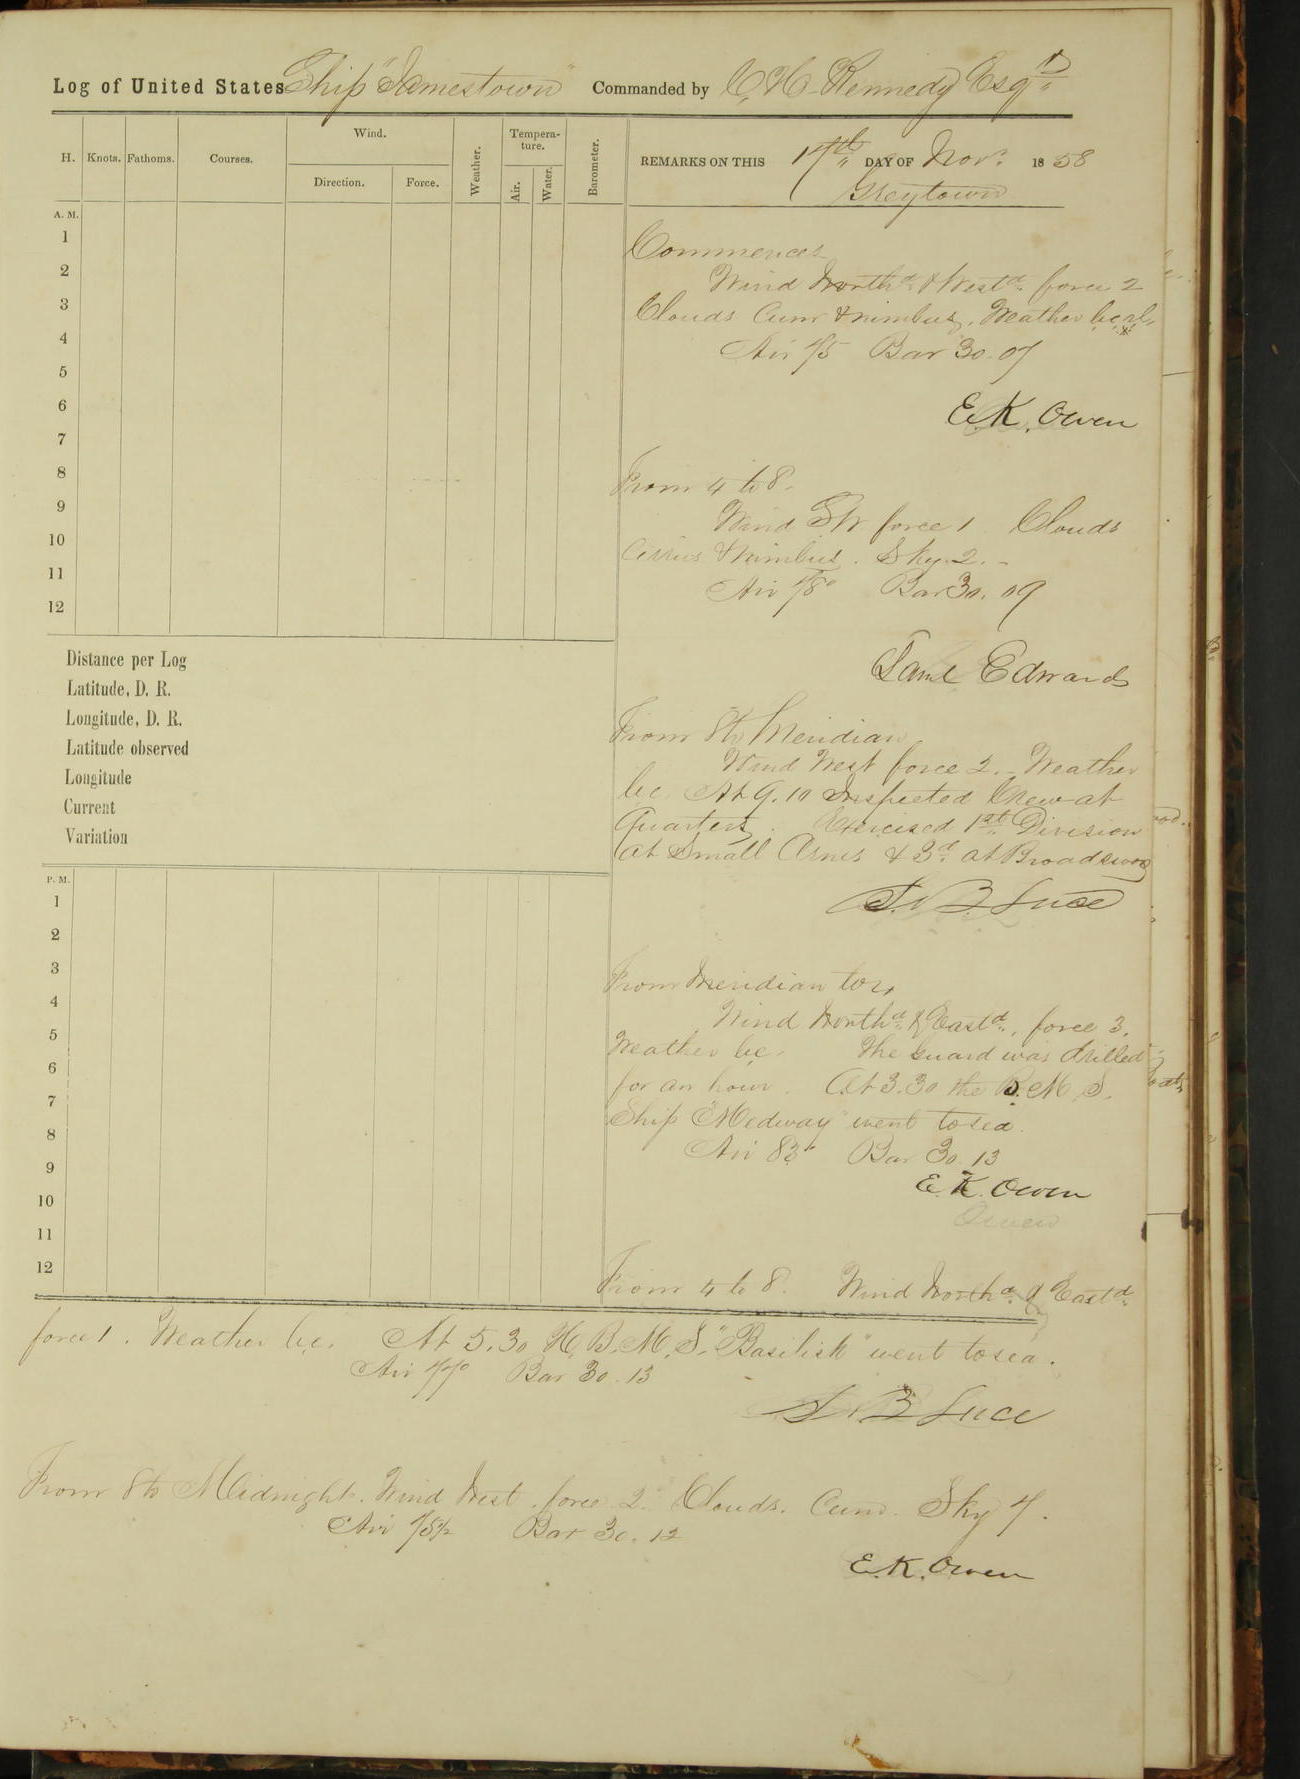 Log of United States Ship "Jamestown" Commanded by C. H. Kennedy Esqr
H. Knots. Fathoms. Courses. Wind. Direction. Force. Weather. Tempera-ture. Air. Water. Barometer.
REMARKS ON THIS 17th DAY OF Novr. 1858
Greytown
A. M.
1
2
3
4
5
6
7
8
9
10
11
12
Commences
Wind Northd. & Westd. force 2
Clouds Cum & nimbus, Weather b.c.r.l.
Air 75 Bar 30.07
E. K. Owen
From 4 to 8.
Wind SW force 1 Clouds
Cirrus & nimbus. Sky 2.
Air 78° Bar 30.09
Saml Edwards
From 8 to Meridian
Wind West force 2. Weather
b.c. At 9.10 Inspected Crew at
Quarters. Exercised 1st Division
at Small Arms & 3d. at Broadsword
S. B. Luce
Distance per Log
Latitude, D. R.
Longitude, D. R.
Latitude observed
Longitude
Current
Variation
P. M.
1
2
3
4
5
6
7
8
9
10
11
12
From Meridian to 4
Wind Northd. & Eastd., force 3.
Weather b.c. The Guard was drilled
for an hour. At 3.30 the R. M. S.
Ship "Medway" went to sea.
Air 83° Bar 30.13
E. K. Owen
Owen
From 4 to 8. Wind Northd. & Eastd.
force 1. Weather b.c. At 5.30 H. B. M. S. "Basilisk" went to sea.
Air 77° Bar 30.13
S. B. Luce
From 8 to Midnight. Wind West. force 2. Clouds. Cum. Sky 7.
Air 75½ Bar 30.12
E. K. Owen